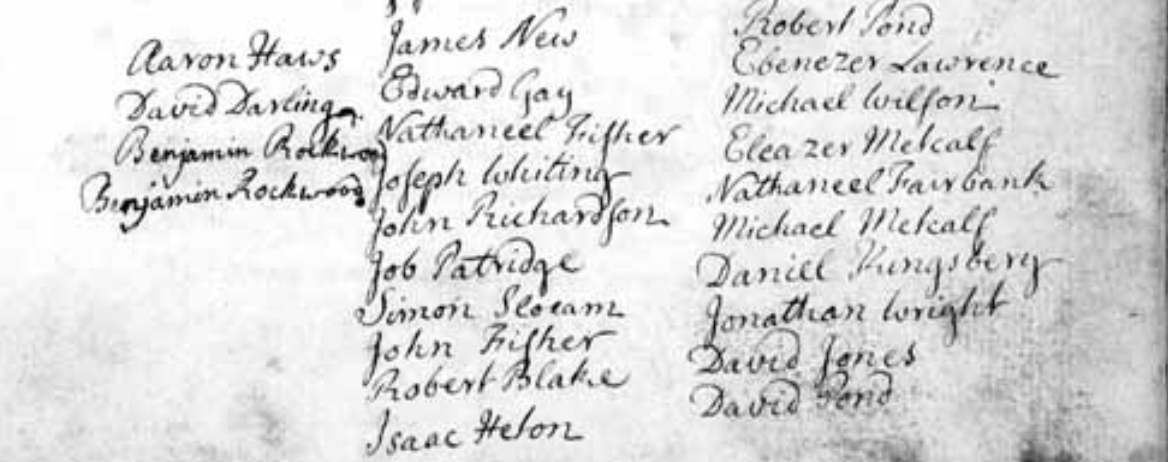 Aaron Haws
David Darling
Benjamin Rockwood
Benjamin Rockwood
James New
Edward Gay
Nathaneel Fisher
Joseph Whiting
John Richardson
Job Patridge
Simon Slocam
John Fisher
Robert Blake
Isaac Heton
Robert Pond
Ebenezer Lawrence
Michael Wilson
Eleazer Metcalf
Nathaneel Fairbank
Michael Metcalf
Daniell Kingsbery
Jonathan Wright
David Jones
David Pond